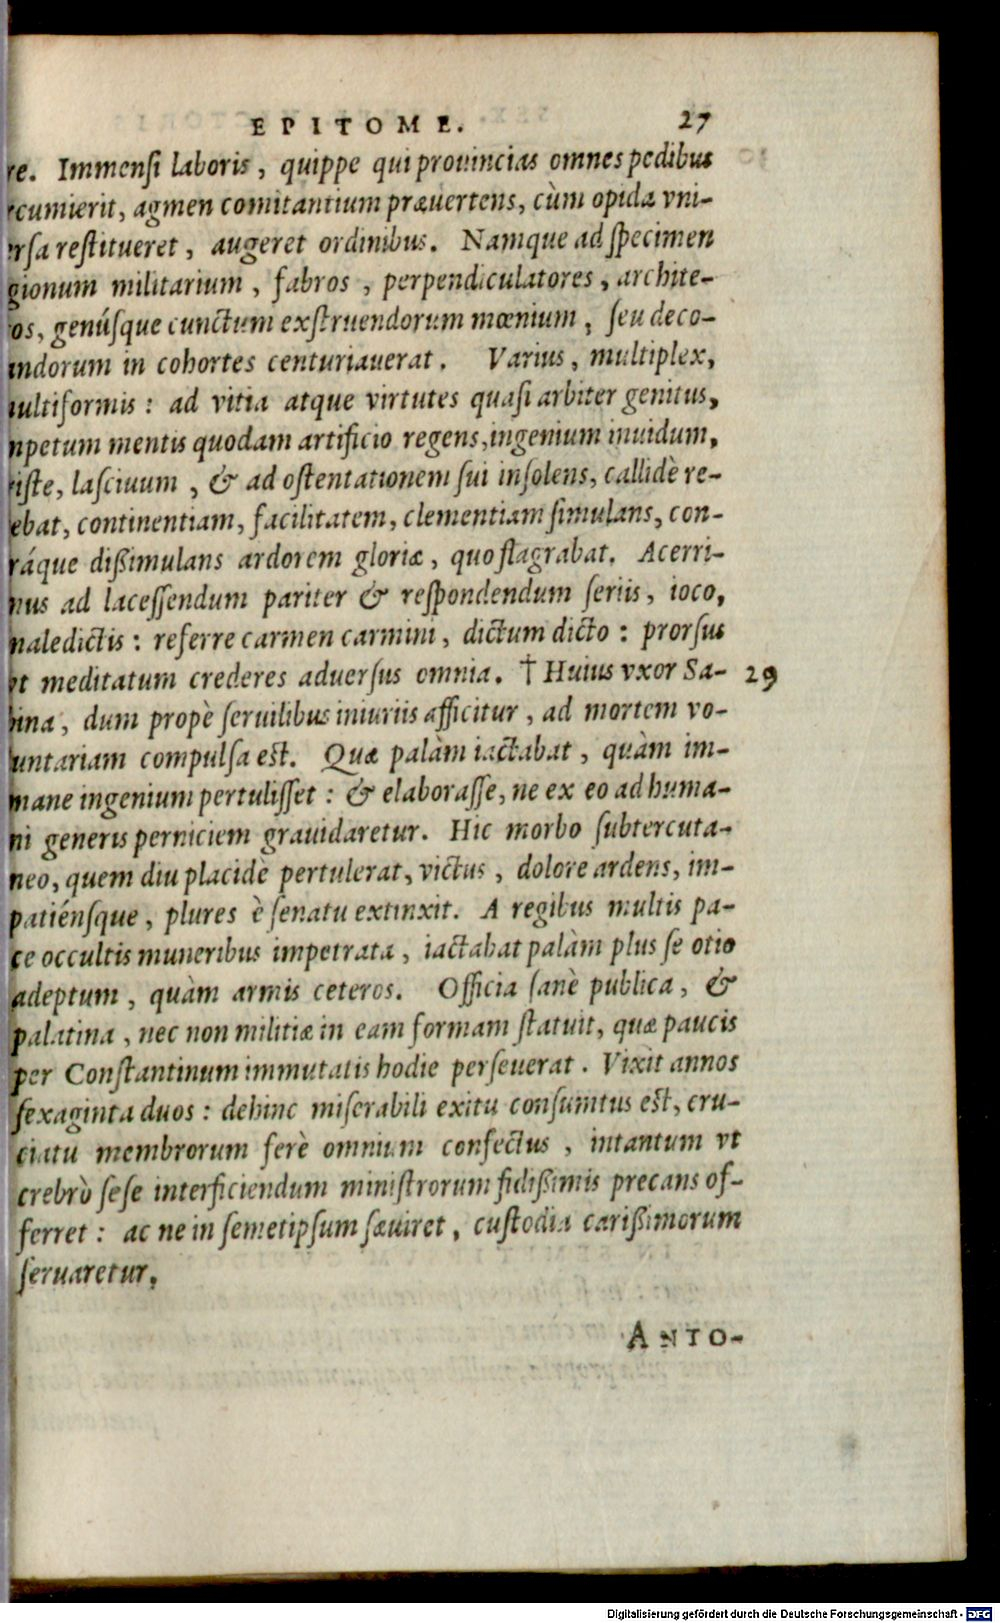 EPITOME. 27
re. Immensi laboris, quippe qui prouincias omnes pedibus
rcumierit, agmen comitantium præuertens, cùm opida vni-
ersa restitueret, augeret ordinibus. Namque ad specimen
gionum militarium, fabros, perpendiculatores, archite-
os, genúsque cunctum exstruendorum mœnium, seu deco-
andorum in cohortes centuriauerat. Varius, multiplex,
multiformis: ad vitia atque virtutes quasi arbiter genitus,
mpetum mentis quodam artificio regens, ingenium inuidum,
riste, lasciuum, & ad ostentationem sui insolens, callidè re-
ebat, continentiam, facilitatem, clementiam simulans, con-
ráque dißimulans ardorem gloriæ, quo flagrabat. Acerri-
mus ad lacessendum pariter & respondendum seriis, ioco,
maledictis: referre carmen carmini, dictum dicto: prorsus
vt meditatum crederes aduersus omnia. † Huius vxor Sa- 29
bina, dum propè seruilibus iniuriis afficitur, ad mortem vo-
luntariam compulsa est. Quæ palàm iactabat, quàm im-
mane ingenium pertulisset: & elaborasse, ne ex eo ad huma-
ni generis perniciem grauidaretur. Hic morbo subtercuta-
neo, quem diu placidè pertulerat, victus, dolore ardens, im-
patiénsque, plures è senatu extinxit. A regibus multis pa-
ce occultis muneribus impetrata, iactabat palàm plus se otio
adeptum, quàm armis ceteros. Officia sanè publica, &
palatina, nec non militiæ in eam formam statuit, quæ paucis
per Constantinum immutatis hodie perseuerat. Vixit annos
sexaginta duos: dehinc miserabili exitu consumtus est, cru-
ciatu membrorum ferè omnium confectus, intantum vt
crebrò sese interficiendum ministrorum fidißimis precans of-
ferret: ac ne in semetipsum sæuiret, custodia carißimorum
seruaretur.
ANTO-
Digitalisierung gefördert durch die Deutsche Forschungsgemeinschaft - DFG